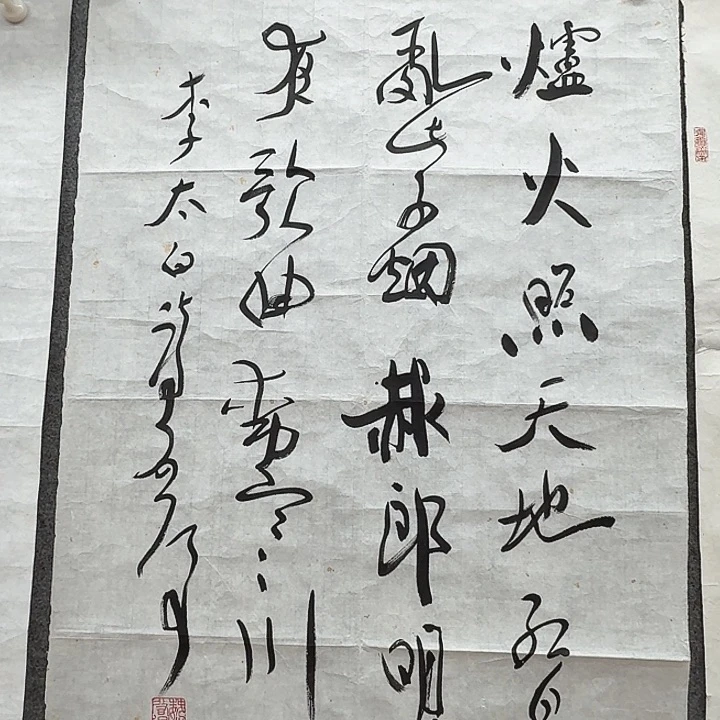 爐火照天地紅
亂紫烟赧郎明
夜歌曲動寒川
李太白詩